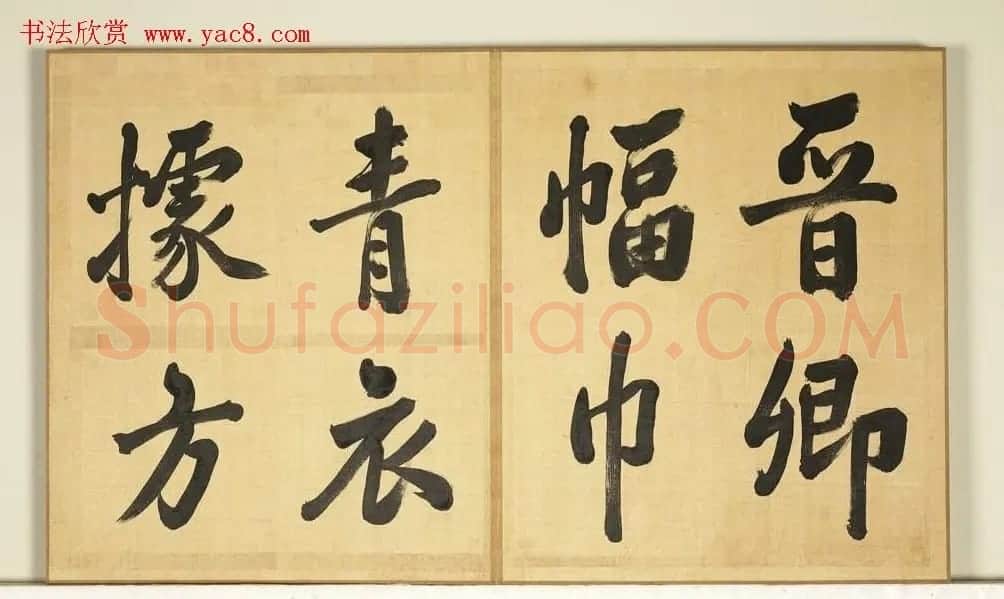 书法欣赏 www.yac8.com
晋卿
幅巾
青衣
據方
Shufaziliao.COM